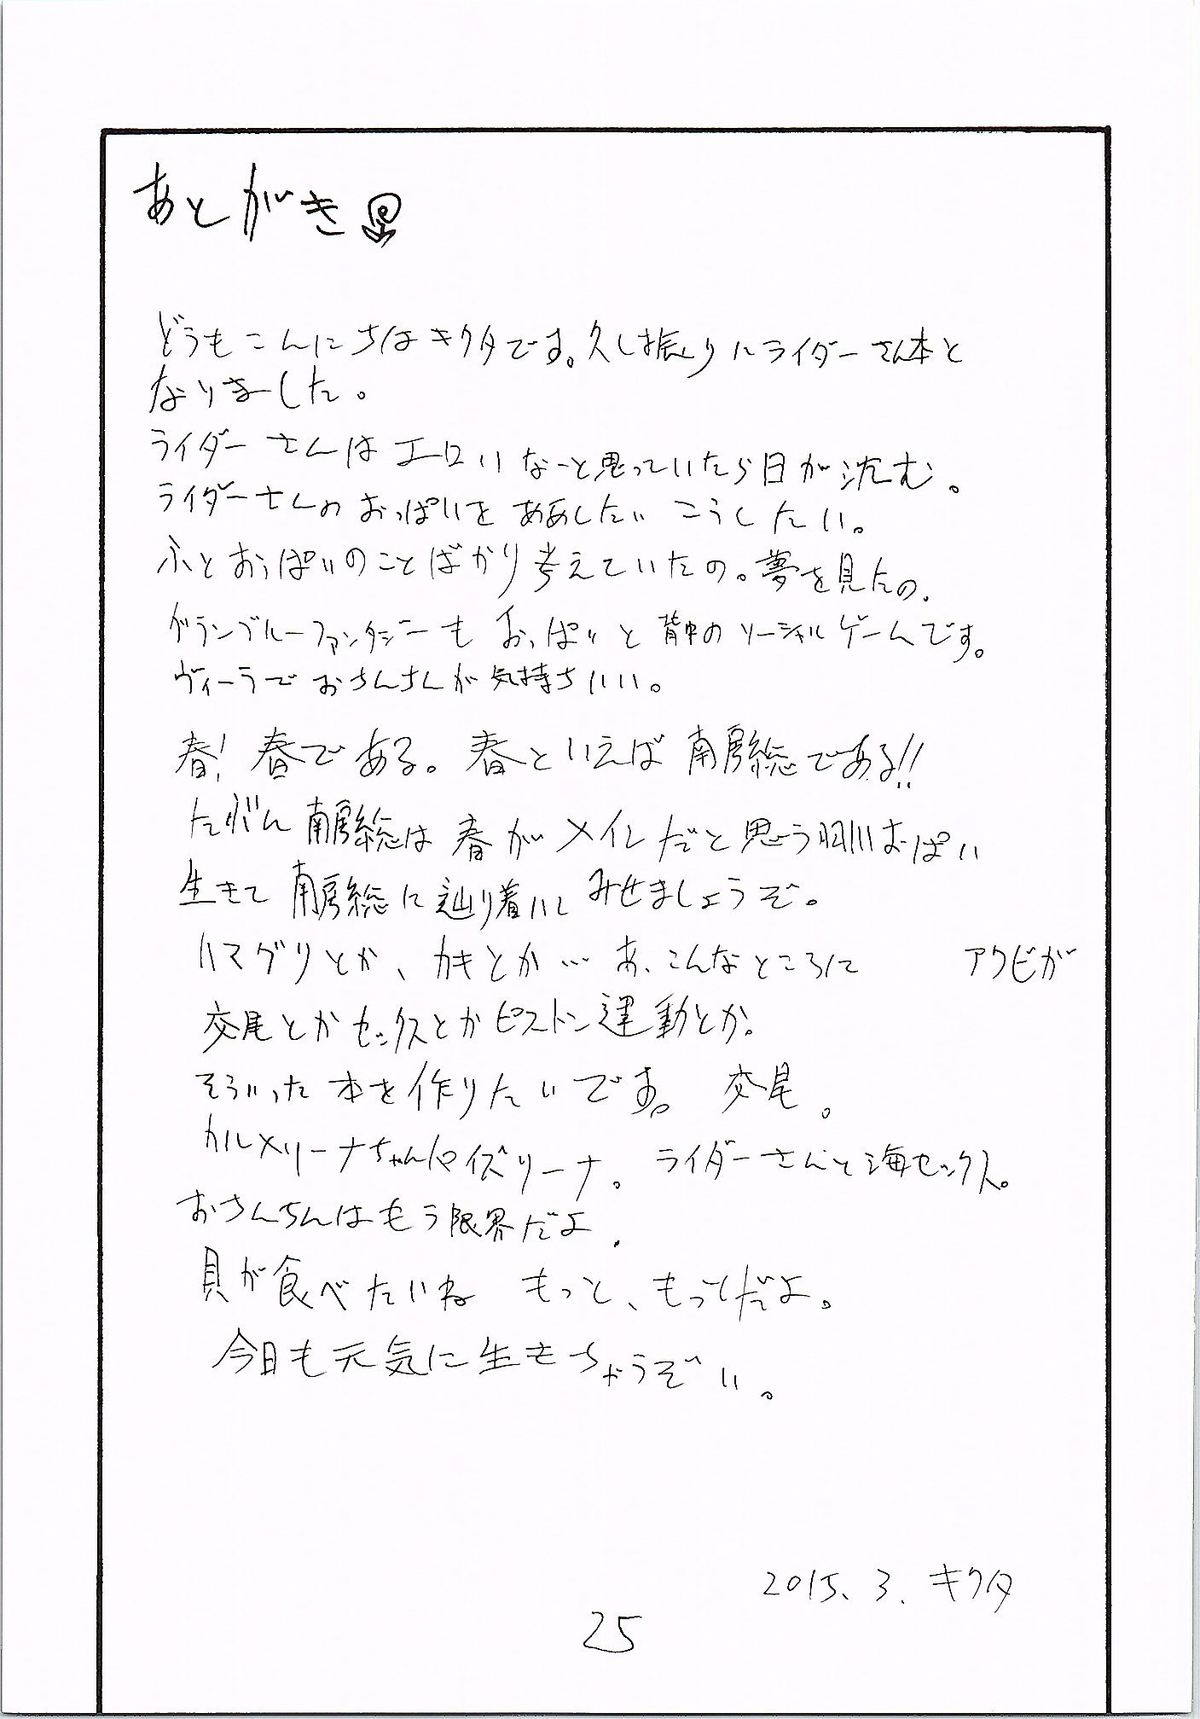 あとがき
どうもこんにちはキクタです。久し振りにライダーさん本と
なりました。
ライダーさんはエロいなーと思っていたら日が沈む。
ライダーさんのおっぱいをああしたいこうしたい。
ふとおっぱいのことばかり考えていたの。夢を見たの。
グランブルーファンタジーもおっぱいと背中のソーシャルゲームです。
ヴィーラでおちんちんが気持ちいい。
春!春である。春といえば南房総である!!
たぶん南房総は春がメインだと思う羽川おぱい
生きて南房総に辿り着いてみせましょうぞ。
ハマグリとか、カキとか…あ、こんなところに アワビが
交尾とかセックスとかピストン運動とか。
そういった本を作りたいです。 交尾。
カルメリーナちゃんパイズリーナ。ライダーさんと海セックス。
おちんちんはもう限界だよ。
貝が食べたいね もっと、もっとだよ。
今日も元気に生きちゃうぞい。
2015.3.キクタ
25